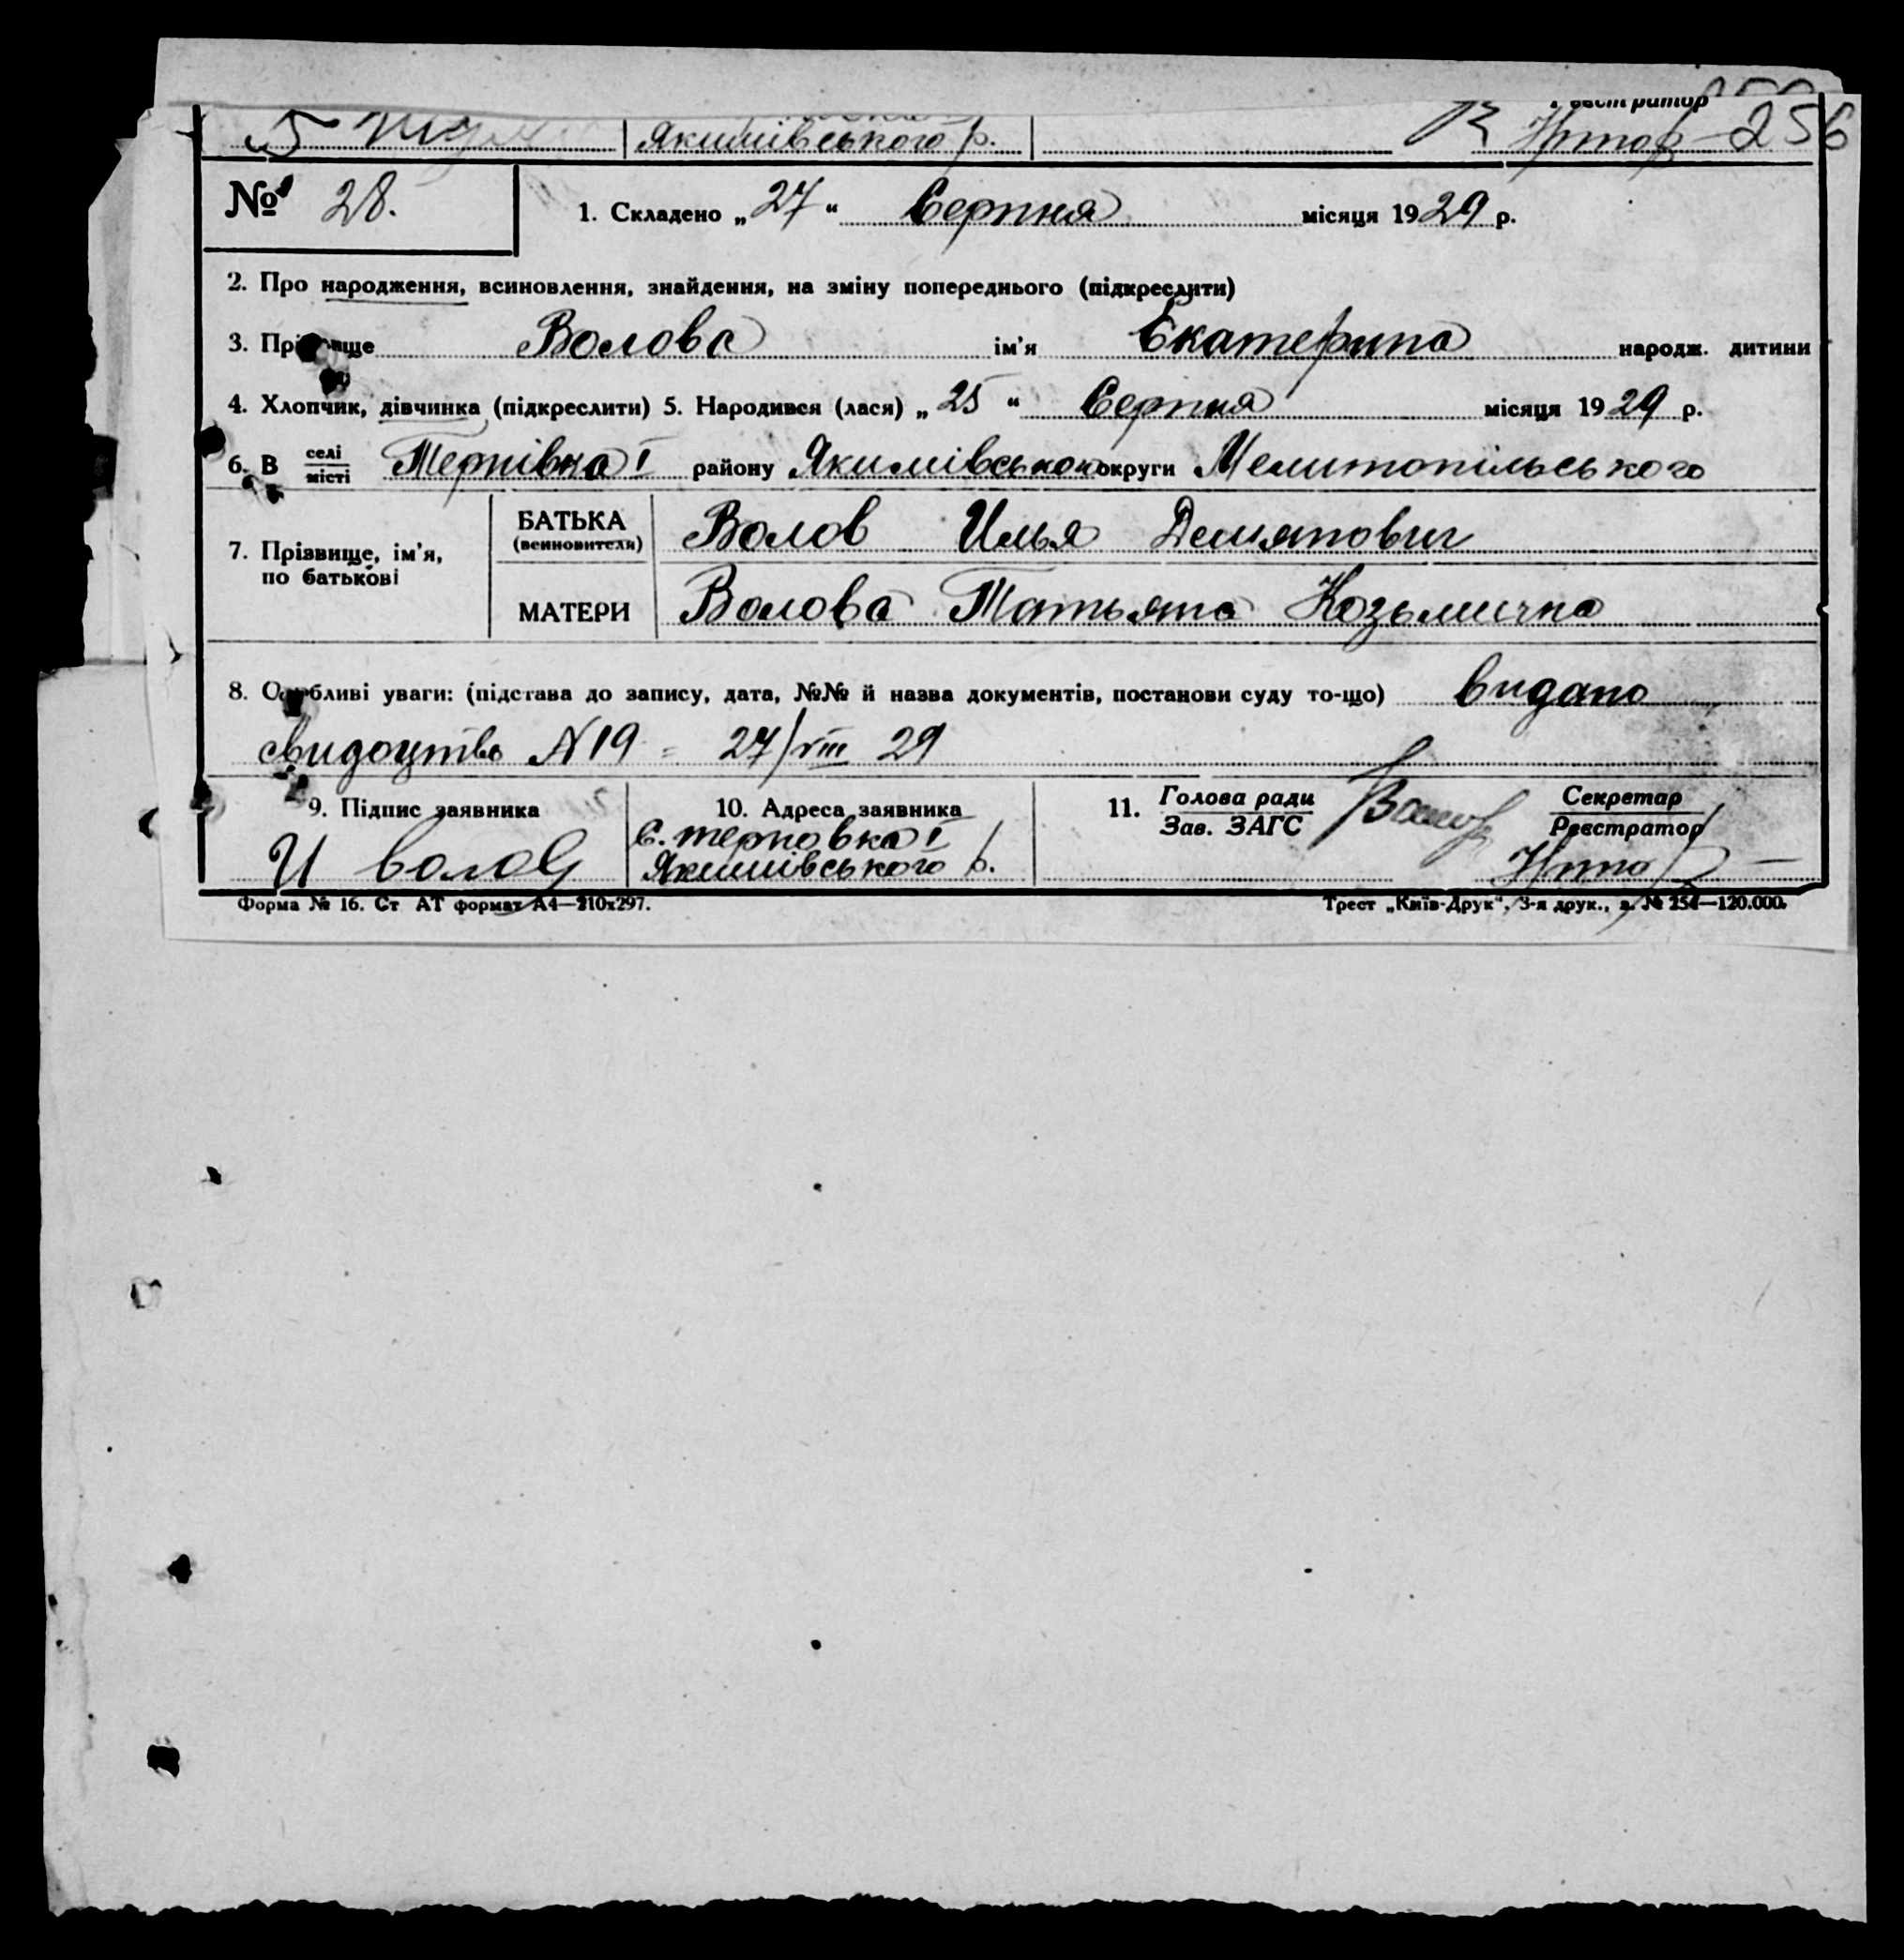 Реєстратор
Якимівського р. 256
№ 28. 1. Складено „27“ Серпня місяця 1929 р.
2. Про народження, всиновлення, знайдення, на зміну попереднього (підкреслити)
3. Прізвище Волова ім'я Екатерина народж. дитини
4. Хлопчик, дівчинка (підкреслити) 5. Народився (лася) „25“ Серпня місяця 1929 р.
6. В селі/місті Тернівка I району Якимівського округи Мелитопільського
7. Прізвище, ім'я, по батькові
БАТЬКА (всиновителя) Волов Илья Демянович
МАТЕРИ Волова Татьяна Козьминична
8. Особливі уваги: (підстава до запису, дата, №№ й назва документів, постанови суду то-що) видано
свидоцтво N 19 = 27/VIII 29
9. Підпис заявника 10. Адреса заявника 11. Голова ради/Зав. ЗАГС Секретар/Реєстратор
И волов с. терновка I
Якимівського р.
Форма № 16. Ст АТ формат А4—210х297. Трест „Київ-Друк“, 3-я друк., з. № 254—120.000.